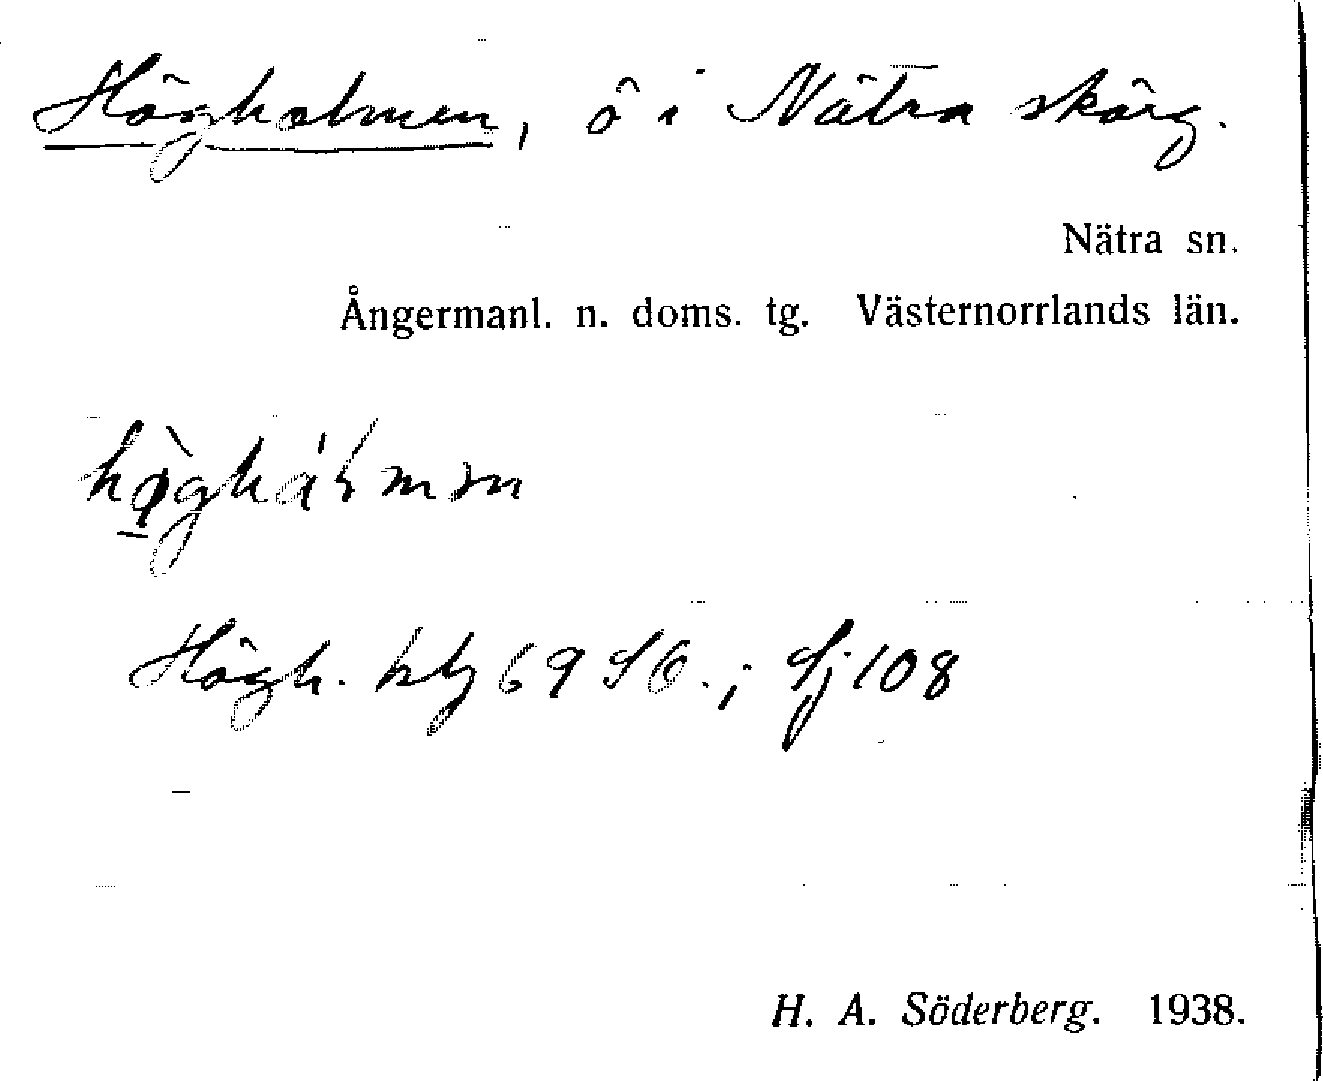 Högholmen, ö i Nätra skärg.
Nätra sn.
Ångermanl. n. doms. tg. Västernorrlands län.
Högh. hbl 69 SO.; Sj 108
H. A. Söderberg. 1938.